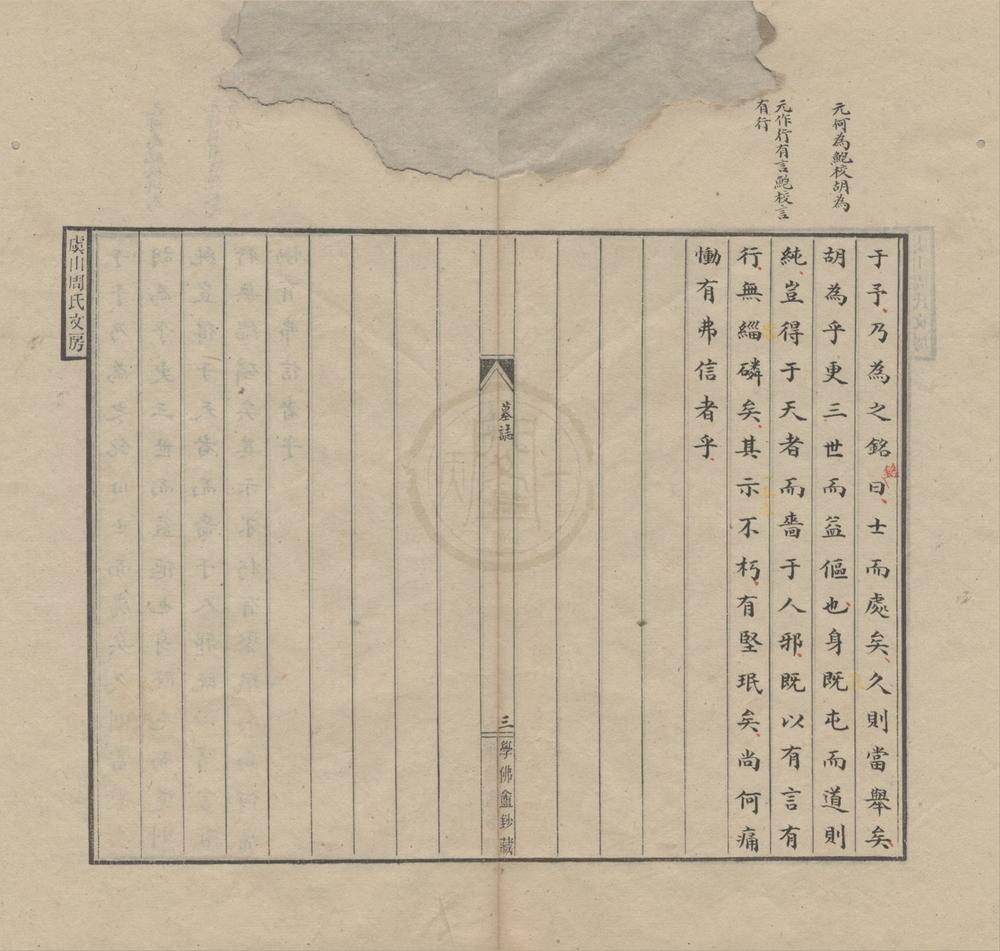 元何為鮑校胡為
元作行有言鮑校言
有行
于予乃為之銘曰士而處矣久則當舉矣
銘
胡為乎更三世而益傴也身既屯而道則
純豈得于天者而嗇于人邪既以有言有
行無緇磷矣其示不朽有堅珉矣尚何痛
慟有弗信者乎
墓誌
三
學佛盦鈔藏
虞山周氏文房